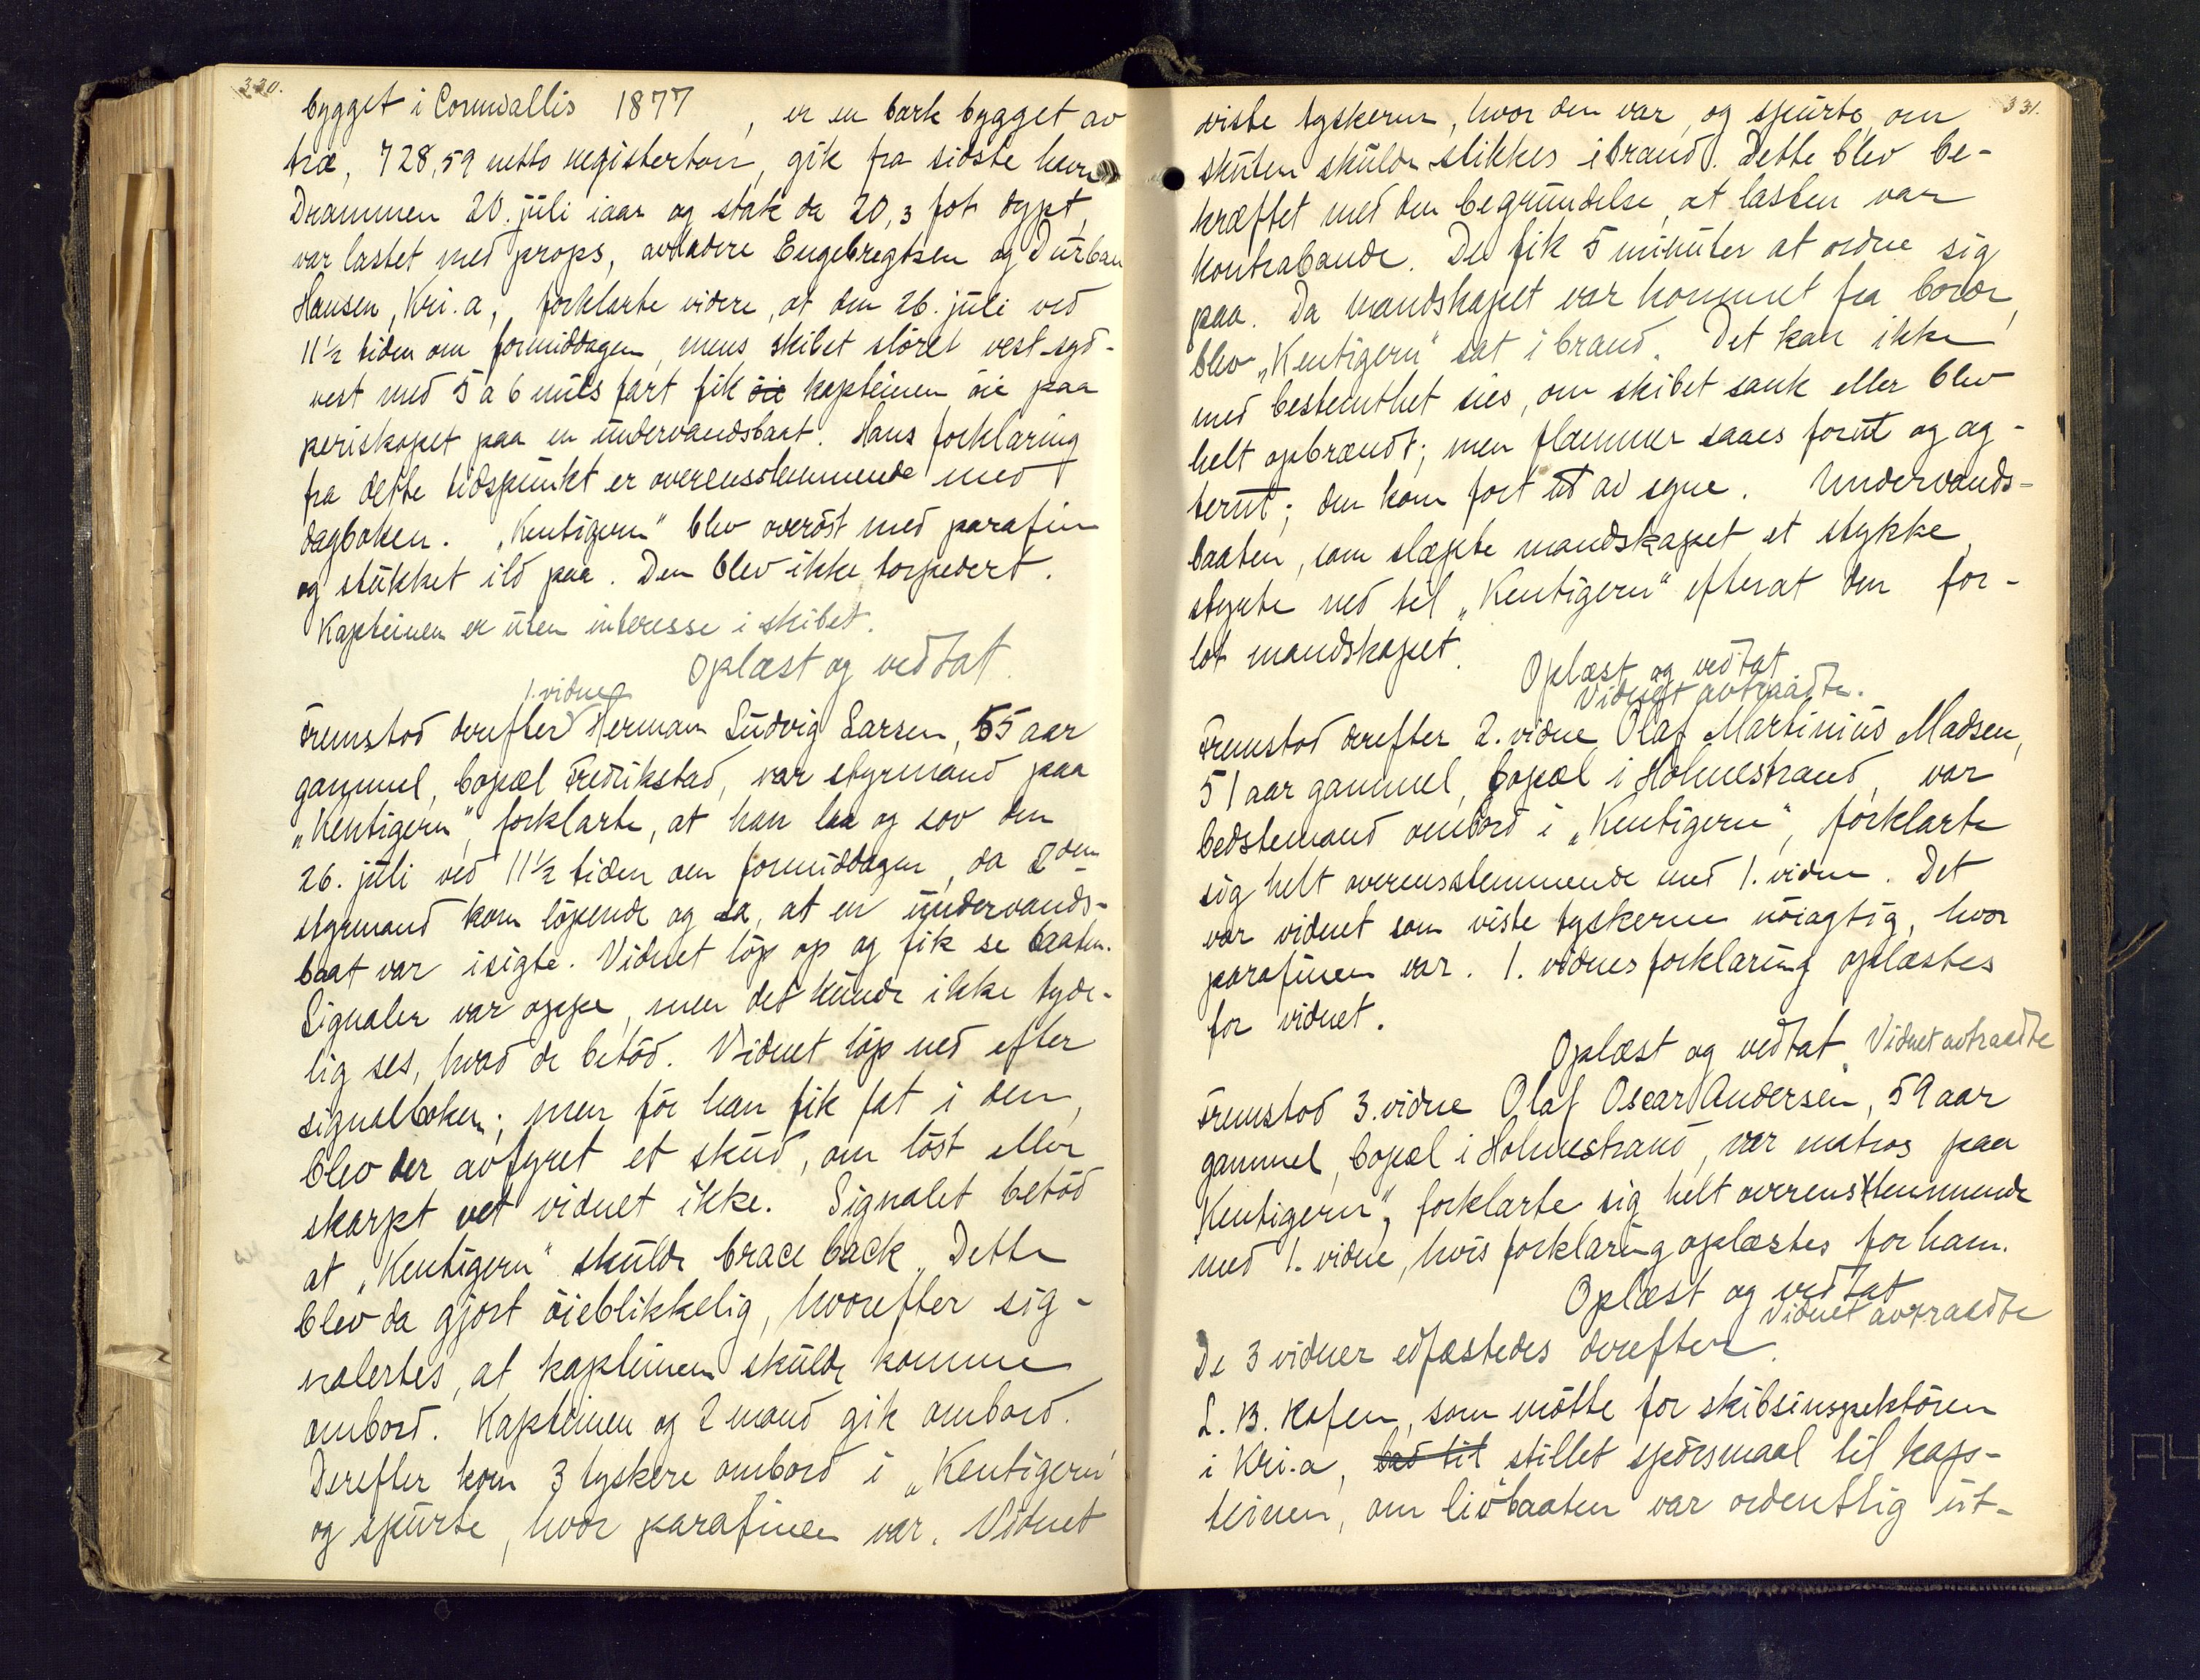 330.
bygget i Cornwallis 1877, er en bark bygget av
træ, 728,59 netto registerton, gik fra sidste havn
Drammen 20. juli iaar og stak da 20,3 fot dypt,
var lastet med props, avladere Engebregtsen og Durban
Hansen, Kri.a, forklarte videre, at den 26. juli ved
11½ tiden om formiddagen, mens skibet störet vest-syd-
vest med 5 a 6 mils fart fik öie kapteinen öie paa
periskopet paa en undervandsbaat. Hans forklaring
fra dette tidspunkt er overensstemmende med
dagboken. "Kentigern" blev overöst med parafin
og stukket ild paa. Den blev ikke torpedert.
Kapteinen er uten interesse i skibet.
Oplæst og vedtat.
1. vidne
Fremstod derefter Herman Ludvig Larsen, 55 aar
gammel, bopæl Fredrikstad, var styrmand paa
"Kentigern", forklarte, at han laa og sov den
26. juli ved 11½ tiden om formiddagen, da 2den
styrmand kom löpende og sa, at en undervands-
baat var isigte. Vidnet löp op og fik se baaten.
Signaler var oppe, men det kunde ikke tyde-
lig ses, hvad de betöd. Vidnet löp ned efter
signalboken; men för han fik fat i den,
blev der avfyret et skud, om löst eller
skarpt vet vidnet ikke. Signalet betöd
at "Kentigern" skulde brace back. Dette
blev da gjort öieblikkelig, hvorefter sig-
nalertes, at kapteinen skulde komme
ombord. Kapteinen og 2 mand gik ombord.
Derefter kom 3 tyskere ombord i "Kentigern"
og spurte, hvor parafinen var. Vidnet
331.
viste tyskerne, hvor den var, og spurte, om
skuten skulde stikkes ibrand. Dette blev be-
kræftet med den begrundelse, at lasten var
kontrabande. De fik 5 minuter at ordne sig
paa. Da mandskapet var kommet fra borde,
blev "Kentigern" sat i brand. Det kan ikke
med bestemthet sies, om skibet sank eller blev
helt opbrændt; men flammer saaes forut og ag-
terut; den kom fort ut av syne. Undervands-
baaten, som slæpte mandskapet et stykke,
styrte ned til "Kentigern" efterat den for-
lot mandskapet.
Oplæst og vedtat
Vidnet avtraadte.
Fremstod derefter 2. vidne Olaf Martinius Madsen,
51 aar gammel, bopæl i Holmestrand, var
bedstemand ombord i "Kentigern", forklarte
sig helt overensstemmende med 1. vidne. Det
var vidnet som viste tyskerne nöiagtig, hvor
parafinen var. 1. vidnes forklaring oplæstes
for vidnet.
Oplæst og vedtat. Vidnet avtraadte
Fremstod 3. vidne Olaf Oscar Andersen, 59 aar
gammel, bopæl i Holmestrand, var matros paa
Kentigern", forklarte sig helt overensstemmende
med 1. vidne, hvis forklaring oplæstes for ham.
Oplæst og vedtat
Vidnet avtraadte
De 3 vidner edfæstedes derefter.
L. B. Kofen, som mötte for skibsinspektören
i Kri.a, bad til stillet spörsmaal til kap-
teinen, om livbaaten var ordentlig ut-